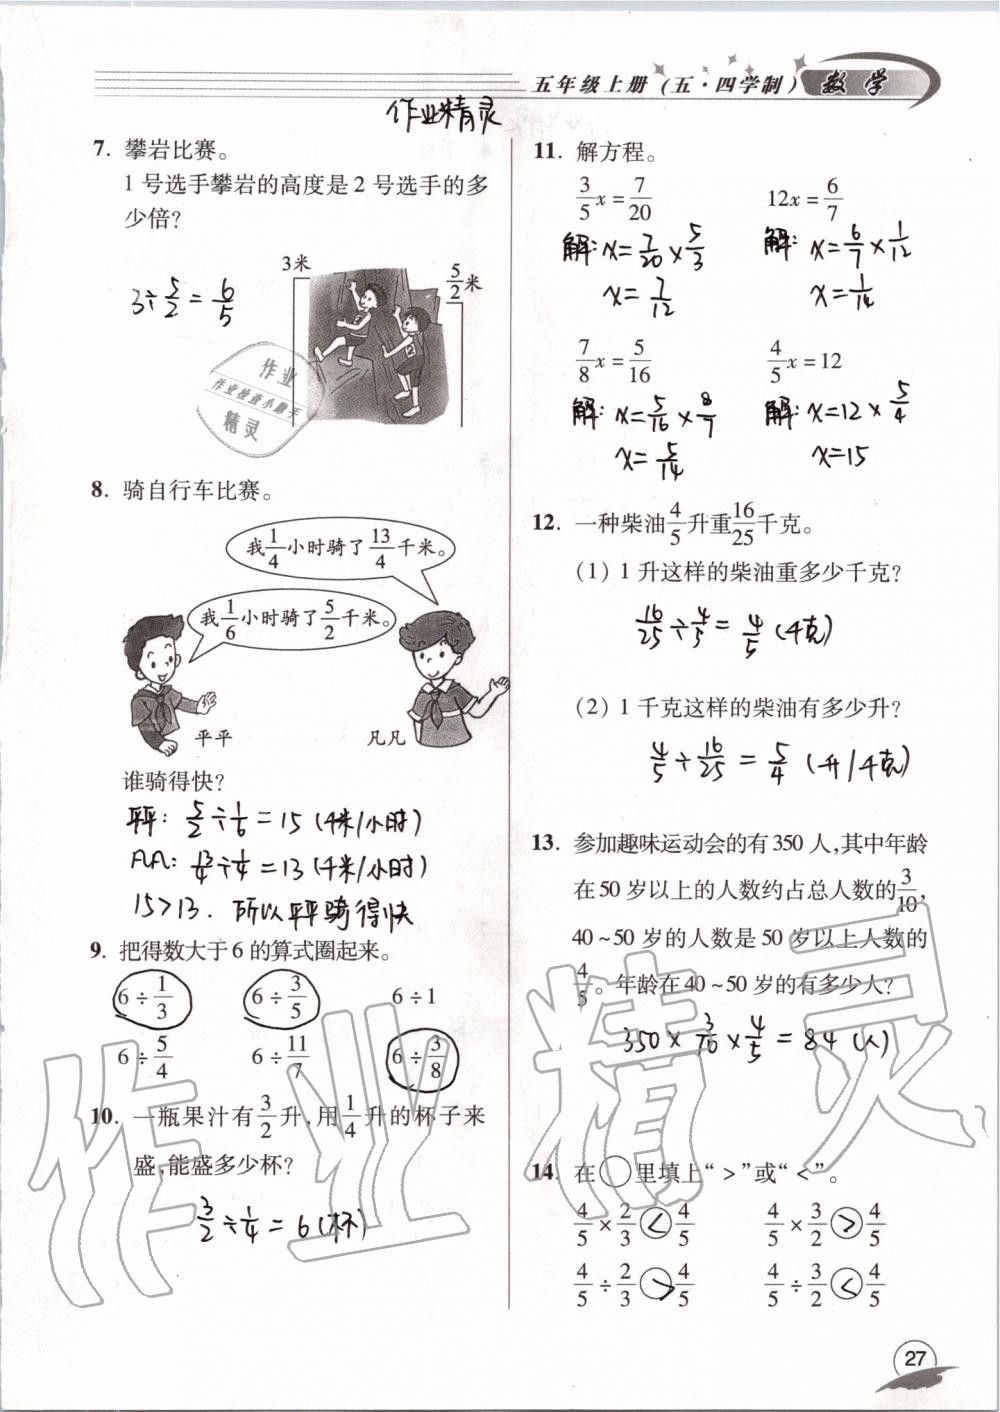 五年级上册（五·四学制） 数学
作业精灵
7. 攀岩比赛。
1号选手攀岩的高度是2号选手的多
少倍?
3米
5/2米
3÷5/2=6/5
作业
作业检查小能手
精灵
8. 骑自行车比赛。
我1/4小时骑了13/4千米。
我1/6小时骑了5/2千米。
平平
凡凡
谁骑得快?
平平: 5/2÷1/6=15(千米/小时)
凡凡: 13/4÷1/4=13(千米/小时)
15>13. 所以平平骑得快
9. 把得数大于6的算式圈起来。
6÷1/3 6÷3/5 6÷1
6÷5/4 6÷11/7 6÷3/8
10. 一瓶果汁有3/2升,用1/4升的杯子来
盛,能盛多少杯?
3/2÷1/4=6(杯)
11. 解方程。
3/5x=7/20 12x=6/7
解: x=7/20×5/3 解: x=6/7×1/12
x=7/12 x=1/14
7/8x=5/16 4/5x=12
解: x=5/16×8/7 解: x=12×5/4
x=5/14 x=15
12. 一种柴油4/5升重16/25千克。
(1) 1升这样的柴油重多少千克?
16/25÷4/5=4/5(千克)
(2) 1千克这样的柴油有多少升?
4/5÷16/25=5/4(升/千克)
13. 参加趣味运动会的有350人,其中年龄
在50岁以上的人数约占总人数的3/10,
40~50岁的人数是50岁以上人数的
4/5。年龄在40~50岁的有多少人?
350×3/10×4/5=84(人)
14. 在○里填上“>”或“<”。
4/5×2/3<4/5 4/5×3/2>4/5
4/5÷2/3>4/5 4/5÷3/2<4/5
作业精灵
27